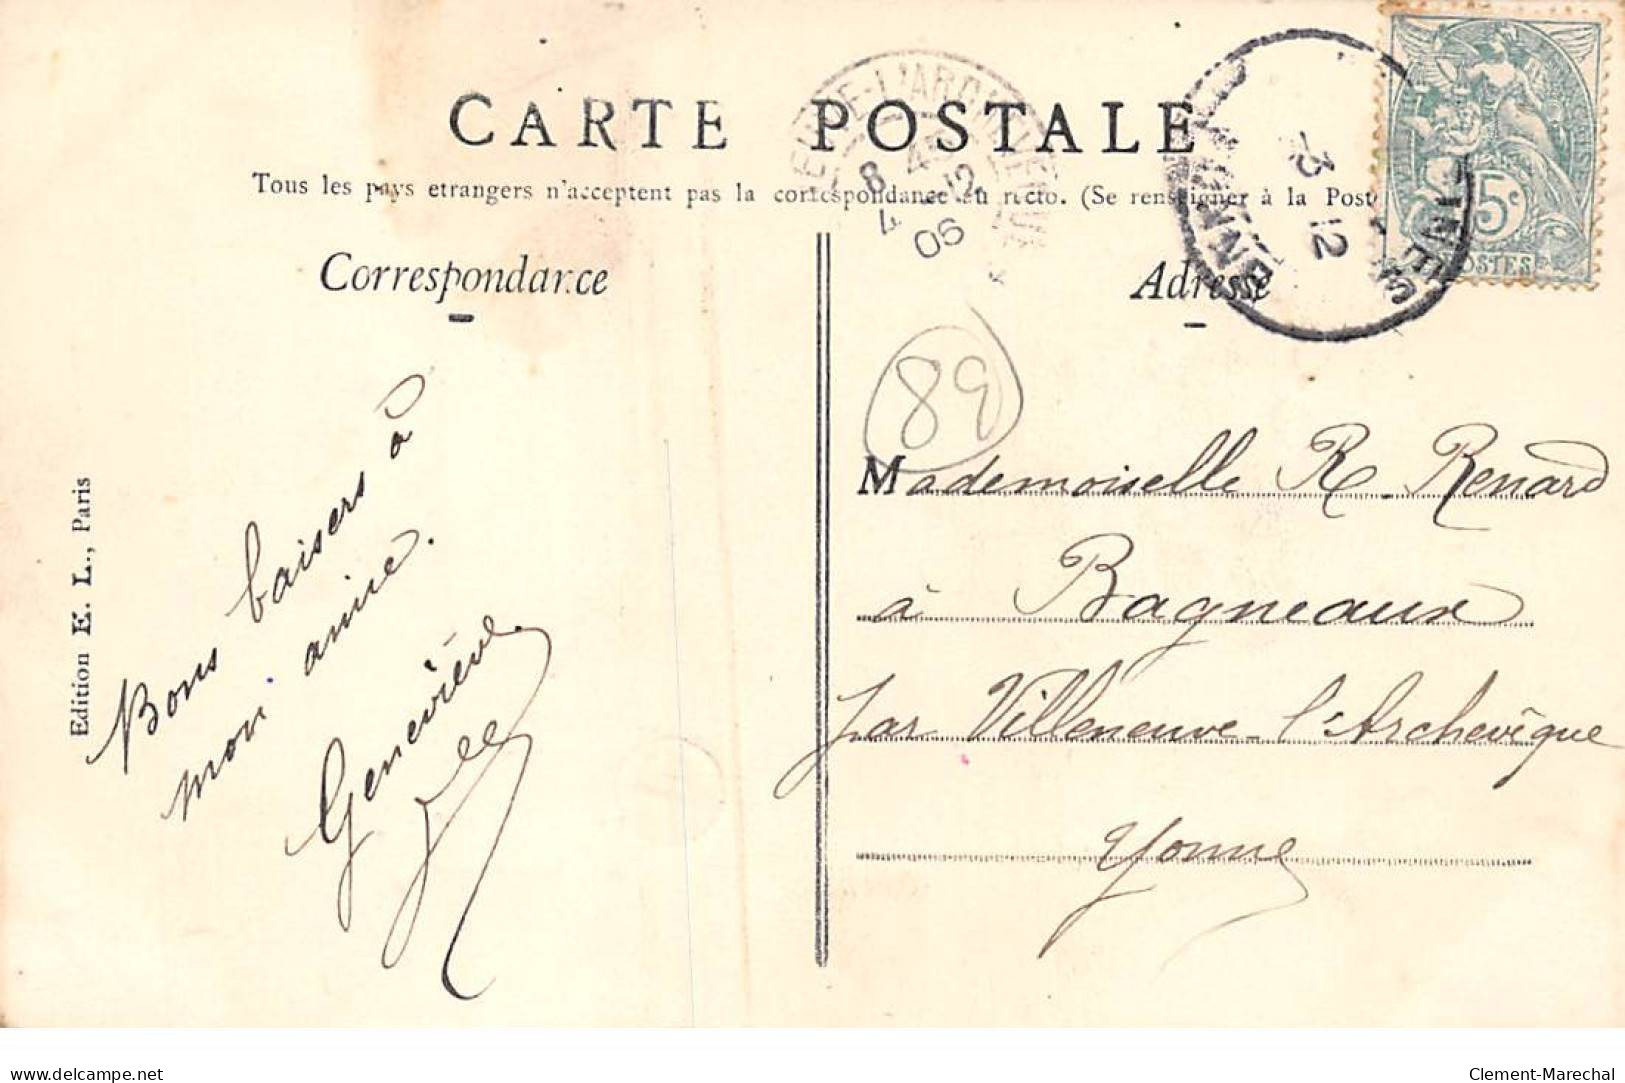 CARTE POSTALE
Tous les pays etrangers n'acceptent pas la correspondance au recto. (Se renseigner à la Post
Correspondance
Adresse
8 4
4 12
06
3
12
5c
POSTES
89
Edition E. L., Paris
Bons baisers à
mon amie.
Geneviève
Mademoiselle R. Renard
à Bagneaux
par Villeneuve-l'Archevêque
Yonne
delcampe.net
Clement-Marechal